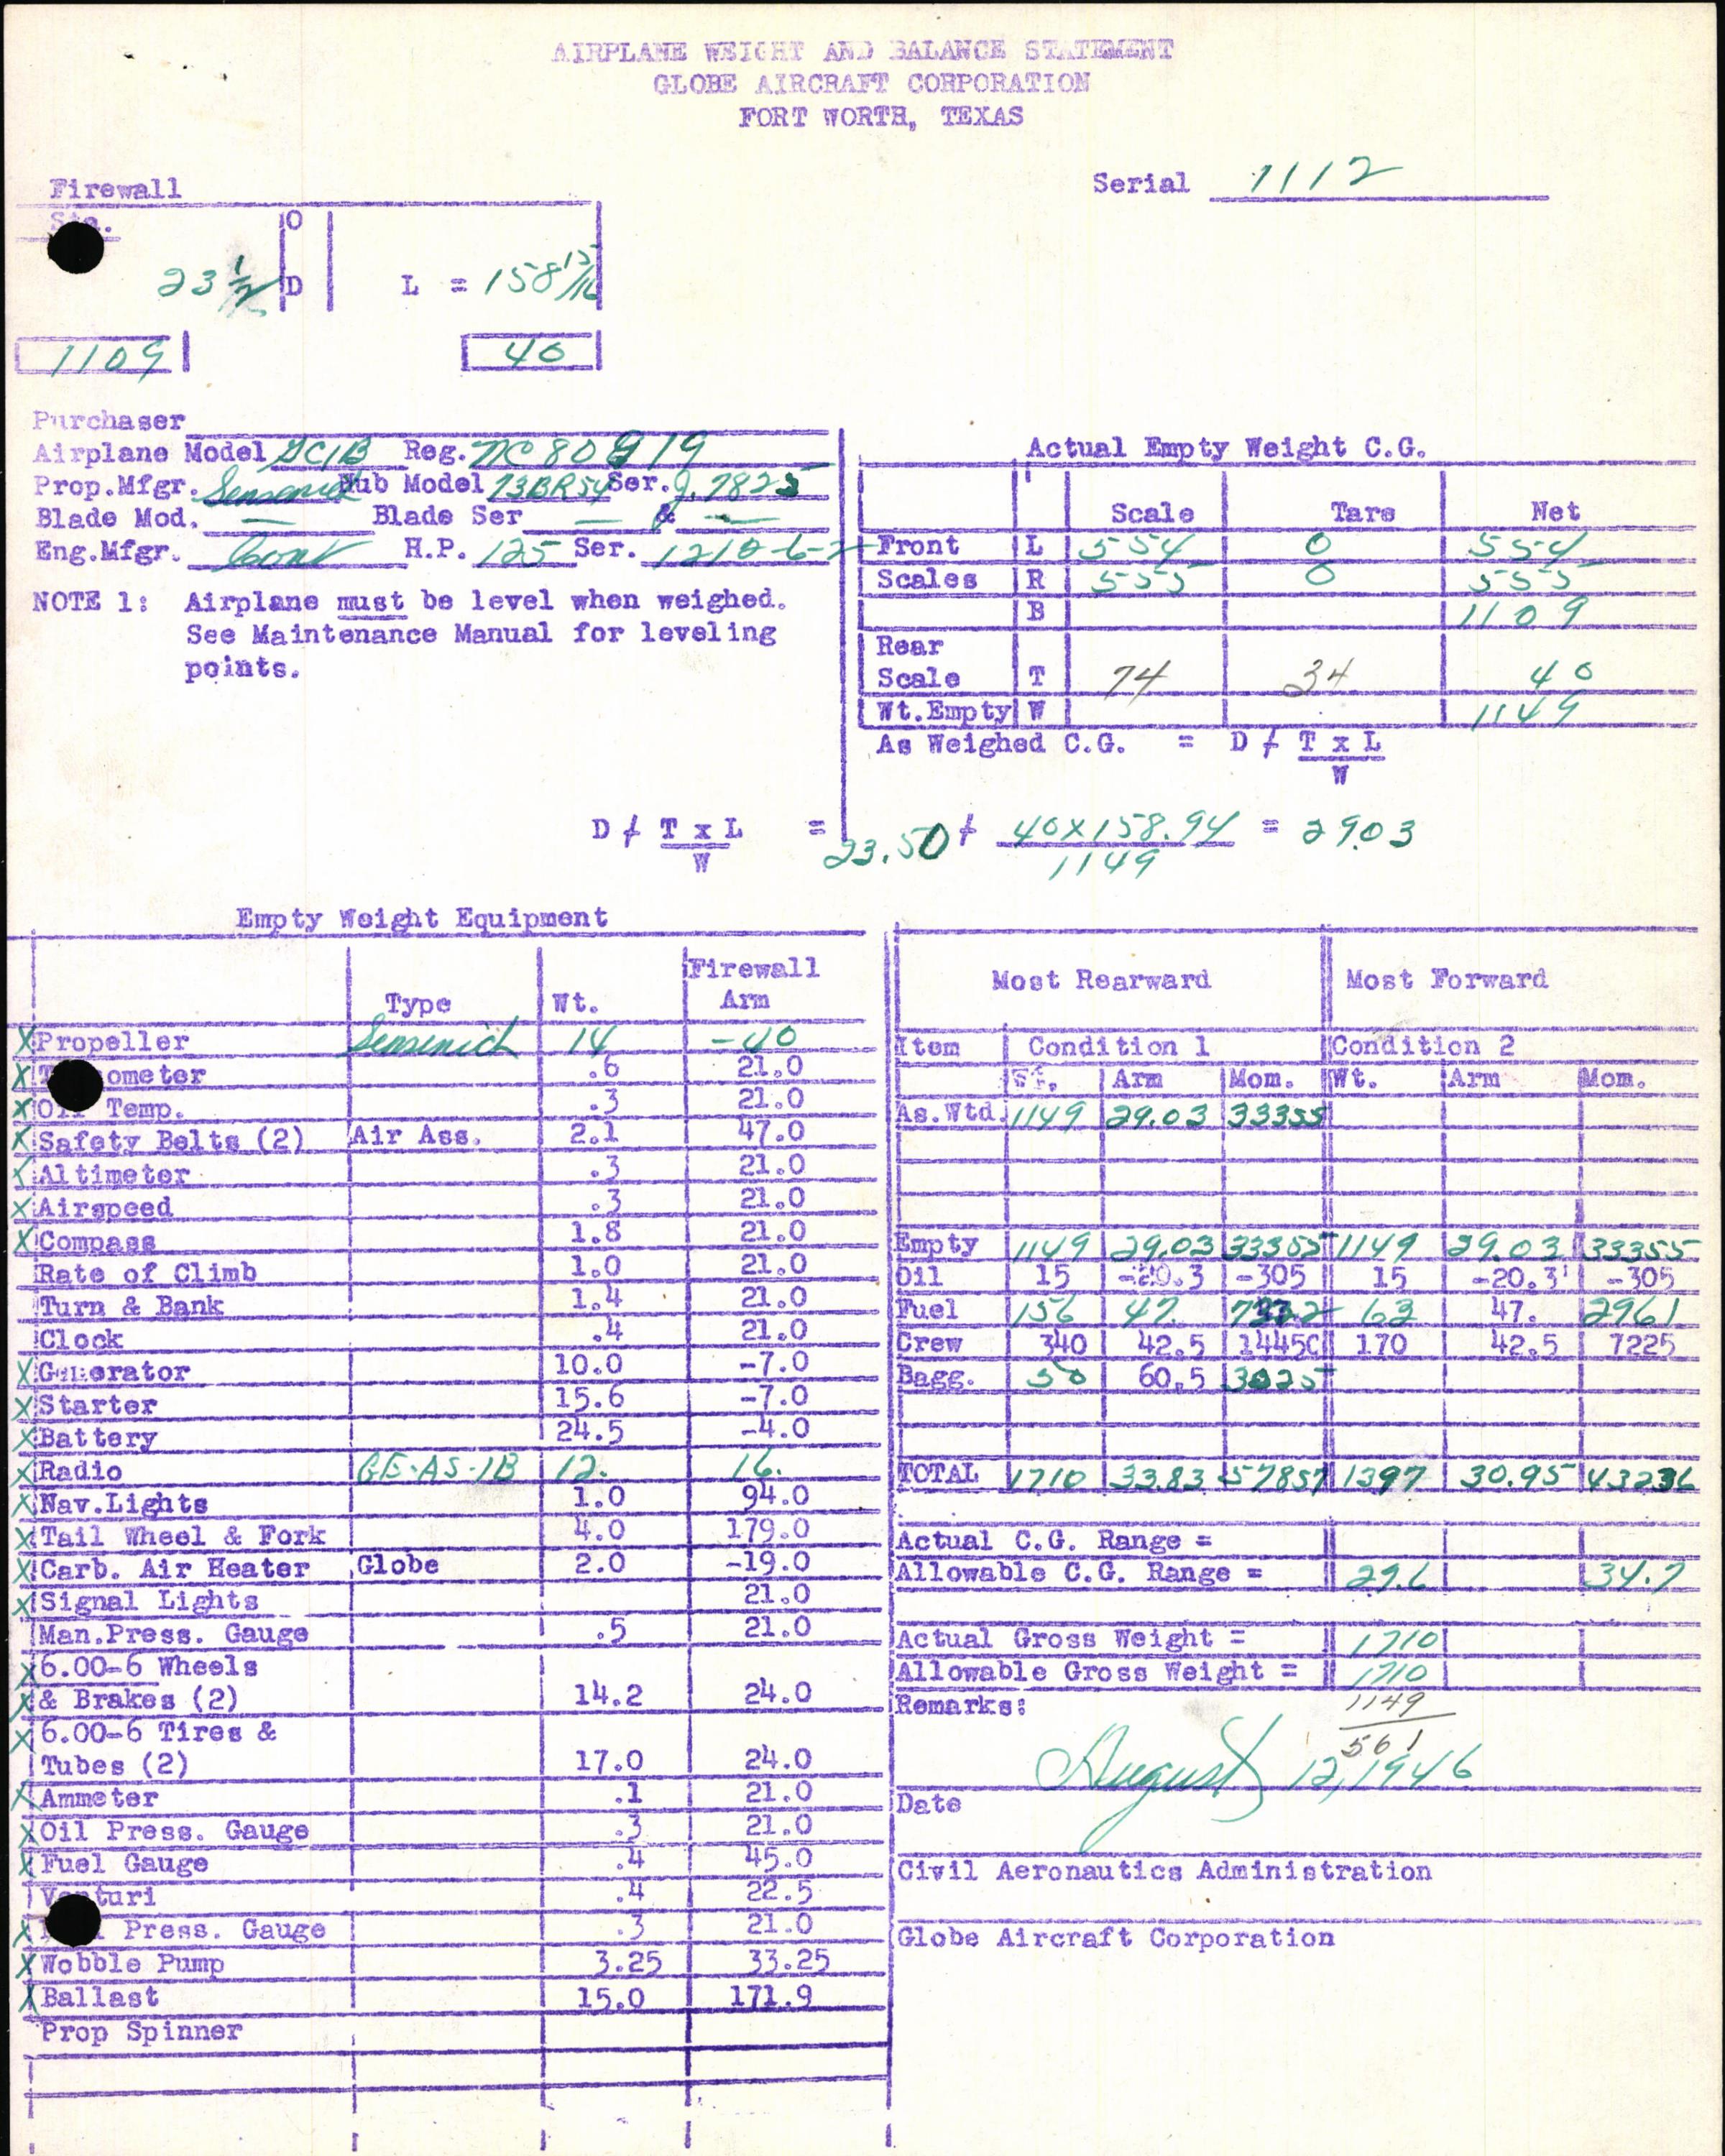 AIRPLANE WEIGHT AND BALANCE STATEMENT
GLOBE AIRCRAFT CORPORATION
FORT WORTH, TEXAS
Serial 1112
Firewall
Sta.
O
23 1/2 D L = 158 15/16
1109 40
Purchaser
Airplane Model GC1B Reg. NC 80919
Prop.Mfgr. Sensenich Hub Model 73BR54 Ser. J.7825
Blade Mod. — Blade Ser — & —
Eng.Mfgr. Cont H.P. 125 Ser.
NOTE 1: Airplane must be level when weighed.
See Maintenance Manual for leveling
points.
Actual Empty Weight C.G.
Scale Tare Net
Front L 554 0 554
Scales R 555 0 555
B 1109
Rear
Scale T 74 34 40
Wt.Empty W 1149
As Weighed C.G. = D + T x L
W
D + T x L = 23.50 + 40x158.94 = 29.03
W 1149
Empty Weight Equipment
Type Wt. Firewall Arm
X Propeller Sensenich 14 -40
X T ometer .6 21.0
X Oil Temp. .3 21.0
X Safety Belts (2) Air Ass. 2.1 47.0
X Altimeter .3 21.0
X Airspeed .3 21.0
X Compass 1.8 21.0
Rate of Climb 1.0 21.0
Turn & Bank 1.4 21.0
Clock .4 21.0
X Generator 10.0 -7.0
X Starter 15.6 -7.0
X Battery 24.5 -4.0
X Radio GE-AS-1B 12. 16.
X Nav.Lights 1.0 94.0
X Tail Wheel & Fork 4.0 179.0
X Carb. Air Heater Globe 2.0 -19.0
X Signal Lights 21.0
Man.Press. Gauge .5 21.0
X 6.00-6 Wheels
X & Brakes (2) 14.2 24.0
X 6.00-6 Tires &
Tubes (2) 17.0 24.0
X Ammeter .1 21.0
X Oil Press. Gauge .3 21.0
X Fuel Gauge .4 45.0
Venturi .4 22.5
X Press. Gauge .3 21.0
X Wobble Pump 3.25 33.25
X Ballast 15.0 171.9
Prop Spinner
Most Rearward Most Forward
Item Condition 1 Condition 2
Wt. Arm Mom. Wt. Arm Mom.
As.Wtd. 1149 29.03 33355
Empty 1149 29.03 33355 1149 29.03 33355
Oil 15 -20.3 -305 15 -20.3 -305
Fuel 156 47. 7332 63 47. 2961
Crew 340 42.5 14450 170 42.5 7225
Bagg. 50 60.5 3025
TOTAL 1710 33.83 57857 1397 30.95 43236
Actual C.G. Range =
Allowable C.G. Range = 29.6 34.7
Actual Gross Weight = 1710
Allowable Gross Weight = 1710
Remarks: 1149
561
August 12, 1946
Date
Civil Aeronautics Administration
Globe Aircraft Corporation